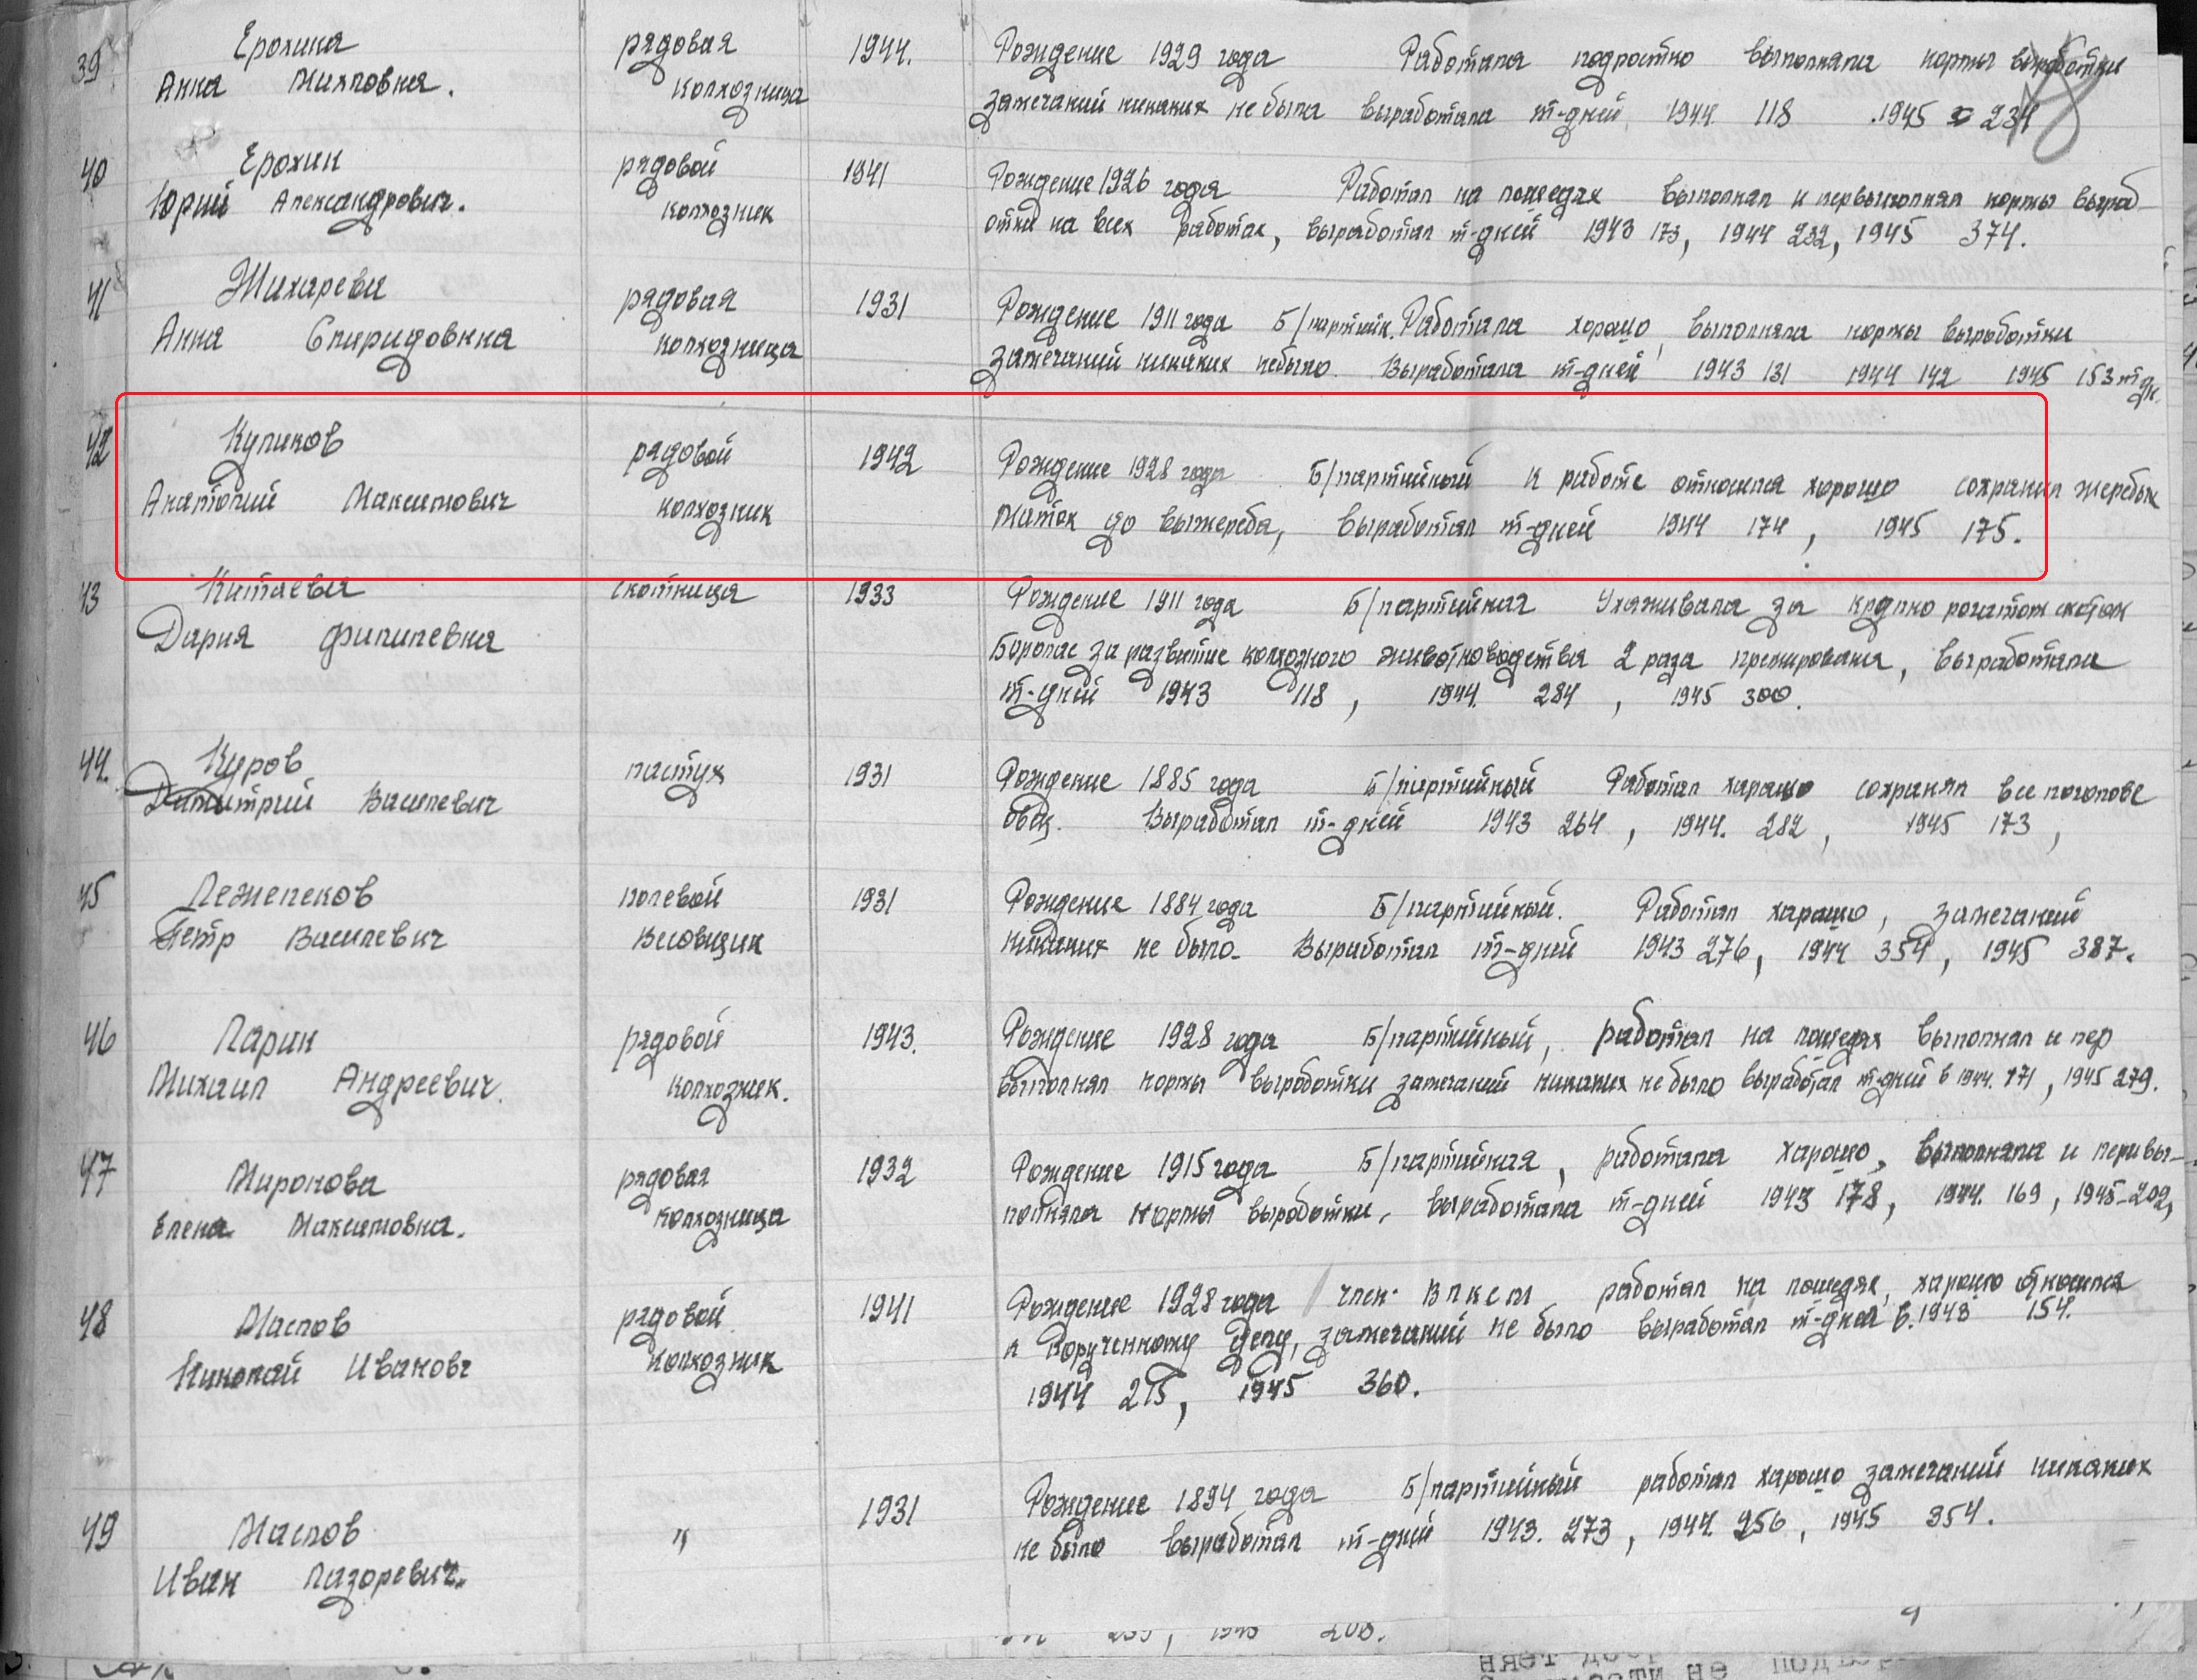 39 Ерохина рядовая 1944. Рождение 1929 года Работала подростко выполняла нормы выработки
Анна колхозница замечаний никаких не была выработала т-дней 1944 118 .1945 234
40 Ерохин рядовой 1941 Рождение 1926 года Работал на лошедях выполнял и первыполнял нормы выраб-
Юрий Александрович. колхозник отки на всех работах, выработал т-дней 1943 173, 1944 232, 1945 374.
41 Жихарева рядовая 1931 Рождение 1911 года Б/партийн. Работала хорошо, выполняла нормы выработки
Анна Спиридовна колхозница замечаний никаких небыло. Выработала т-дней 1943 131 1944 142 1945 153 т дн.
42 Куликов рядовой 1942 Рождение 1928 года Б/партийный К работе относился хорошо сохранил жеребых
Анатолий Максимович колхозник маток до выжереба, выработал т-дней 1944 174, 1945 175.
43 Китаева скотница 1933 Рождение 1911 года Б/партийная Ухаживала за крупно рогатом скотом
Дария Филипевна Боролас за развитие колхозного животноводства 2 раза премирована, выработала
т-дней 1943 118, 1944. 284, 1945 300.
44. Куров пастух 1931 Рождение 1885 года Б/партийный Работал харашо сохранял все поголове
Димитрий Василевич овец. Выработал т-дней 1943 264, 1944. 282, 1945 173,
45 Лежепеков полевой 1931 Рождение 1884 года Б/партийный. Работал харашо, замечаний
Петр Василевич весовщик никаких не было. Выработал т-дней 1943 276, 1944 354, 1945 387.
46 Ларин рядовой 1943. Рождение 1928 года Б/партийный, работал на лошедях выполнял и пер
Михаил Андреевич. колхозник. выполнял нормы выработки замечаний никаких не было выработал т-дней в 1944. 171, 1945 279.
47 Миронова рядовая 1932 Рождение 1915 года Б/партийная, работала харашо, выполняла и перивы-
Елена Максимовна. колхозница полняла нормы выработки, выработала т-дней 1943 178, 1944. 169, 1945-202,
48 Маслов рядовой 1941 Рождение 1928 года член ВЛКСМ работал на лошедях, харашо относился
Николай Ивановч колхозник к порученному делу, замечаний не было выработал т-дней в.1943 154.
1944 215, 1945 360.
49 Маслов " 1931 Рождение 1894 года Б/партийный работал харашо замечаний никаких
Иван Лазоревич. не было выработал т-дней 1943. 273, 1944 256, 1945 354.